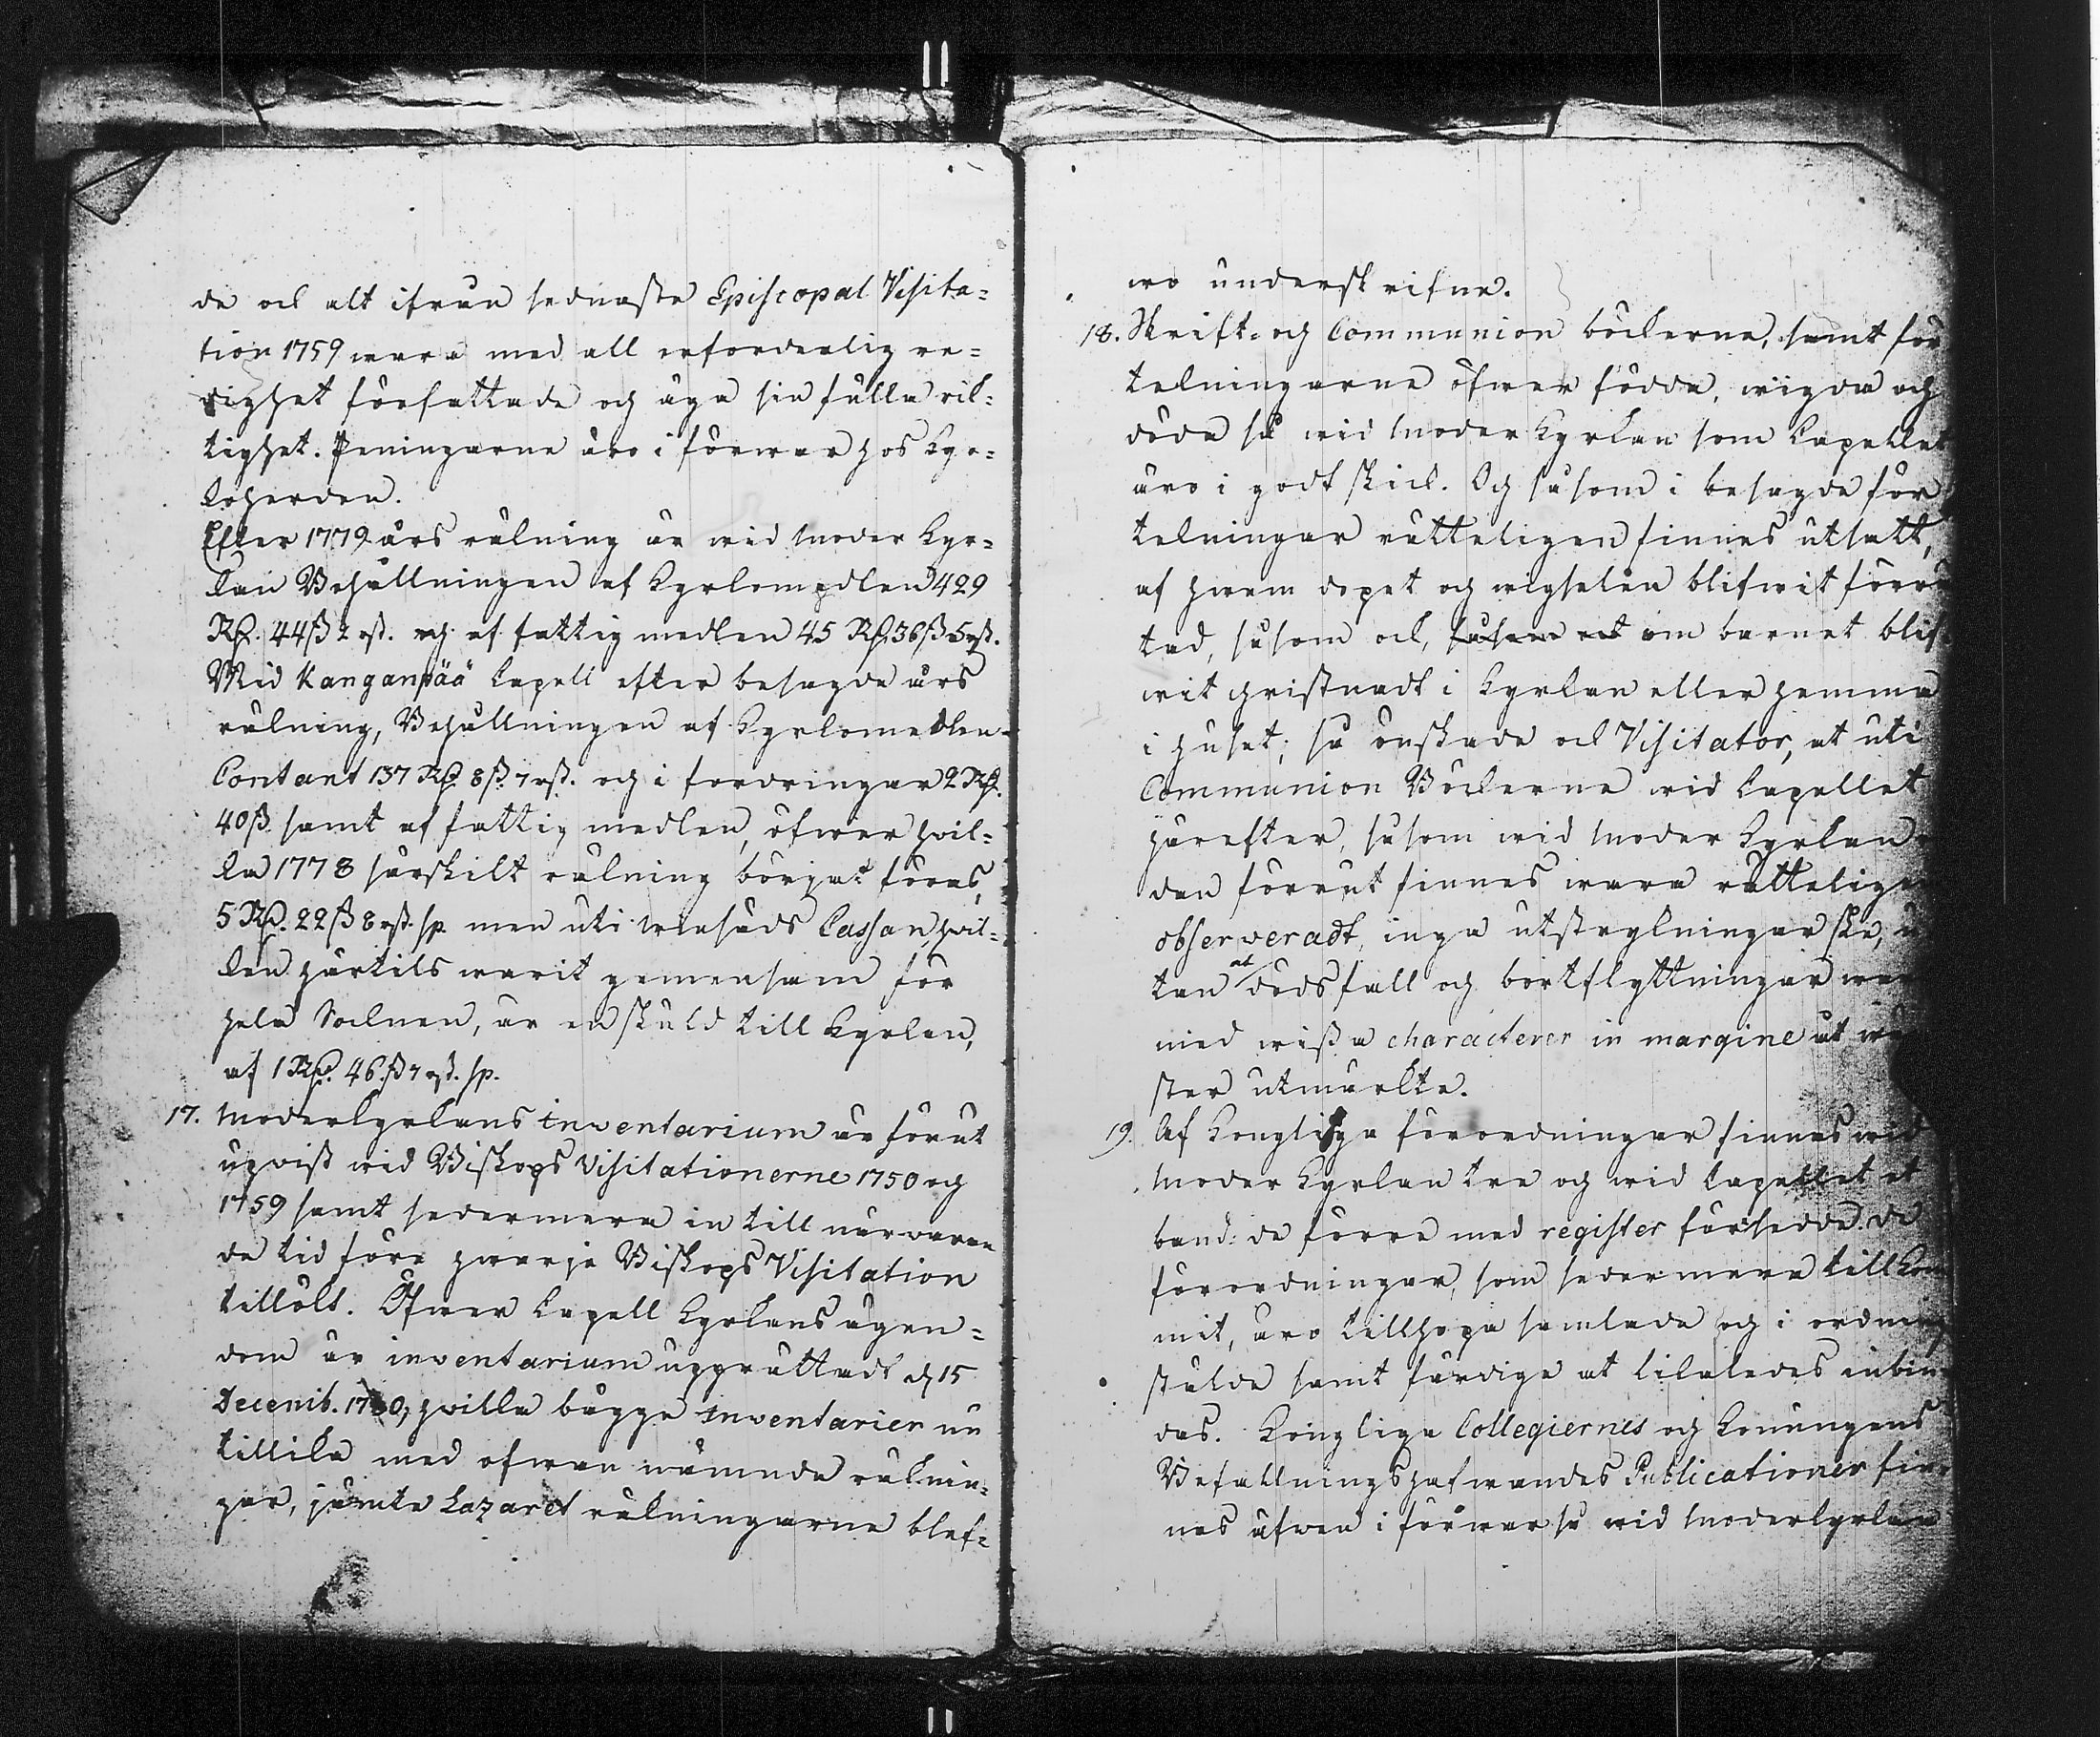 de ock alt ifrån sednaste Episcopal Visita=
tion 1759 wara med all erforderlig re=
dighet författade och äga sin fulla rik=
tighet. Peningarne äro i förwar hos Kyr=
koherden.
Efter 1779 års räkning är wid Moder Kyr=
kan Behållningen af Kyrkomedlen 429
Rd. 44ß 2 rst. och af fattig medlen 45 Rd. 36ß 5 rst.
Wid Kanganpää Capell efter besagde års
räkning, Behållningen af Kyrkomedlen
Contant 137 Rd. 8ß 7 rst. och i fordringar 2 Rd.
40ß samt af fattig medlen, öfwer hwil=
ka 1778 särskilt räkning börjat föras,
5 Rd. 22ß 8 rst. sp. men uti Cassan, hwil=
ken härtils warit gemensam för
hela Socknen, är en skuld till Kyrkan,
af 1 Rd. 46ß 7 rst. sp.
17. Moderkyrkans inventarium är förut
upwist wid Biskops Visitationerne 1750 och
1759 samt sedermera in till närwaran
de tid före hwarje Biskops Visitation
tillökt. Öfwer Capell Kyrkans ägen=
dom är inventarium upprättadt d. 15
Decemb. 1780, hwilka bägge inventarier nu
tillika med ofwan nämnde räknin=
gar, jemte Lazaret räkningarne blef=
wo underskrifne.
18. Skrift- och Communion böckerne, samt för
telningarne öfwer födda, wigda och
döda så wid Moder Kyrkan som Capellet
äro i godt skick. Och såsom i besagde för
telningar rätteligen finnes utsatt,
af hwem dopet och wigselen blifwit förrä
tad, såsom ock, såsom ock om barnet blif
wit christnadt i Kyrkan eller hemma
i huset; så önskade ock Visitator, at uti
Communion Böckerne wid Capellet
härefter, såsom wid Moder Kyrkan
dan förrut finnes wara rätteligen
observeradt, inga utstrykningar ske, u
tan at dödsfall och bortflyttningar
med wissa characterer in margine ut
ster utmärkte.
19. Af Kongliga förordningar finnes wid
Moder Kyrkan tre och wid Capellet et
band: de förre med register försedde. De
förordningar, som sedermera till kom
mit, äro tillhopa samlade och i ordning
stälde samt färdige at likaledes inbin
das. Kongliga Collegiernes och Konungens
Befallningshafwandes Publicationer fin
nes äfwen i förwar så wid Moderkyrkan